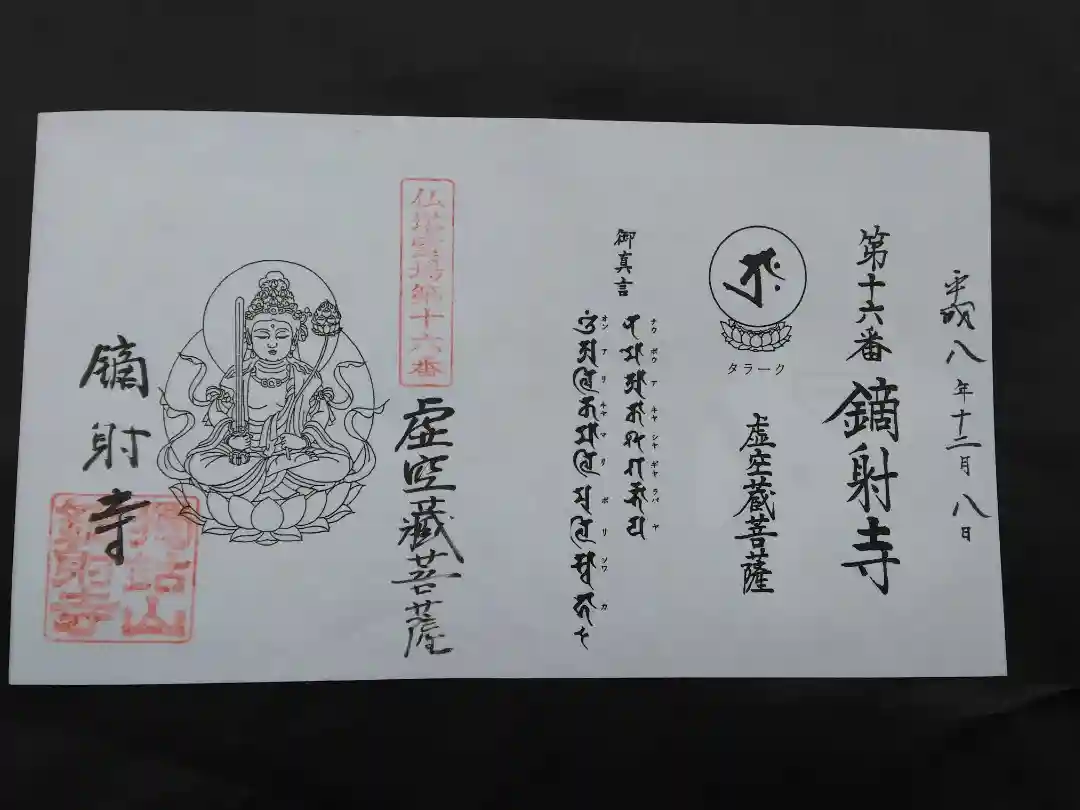 平成八年十二月八日
第十六番 鏑射寺
タラーク
虚空蔵菩薩
御真言
ナウ ボウ ア キャ シャ ギャ ラバ ヤ
オン ア リ キャ マ リ ボ リ ソワ カ
仏塔霊場第十六番
虚空藏菩薩
鏑射寺
独鈷山
鏑射寺